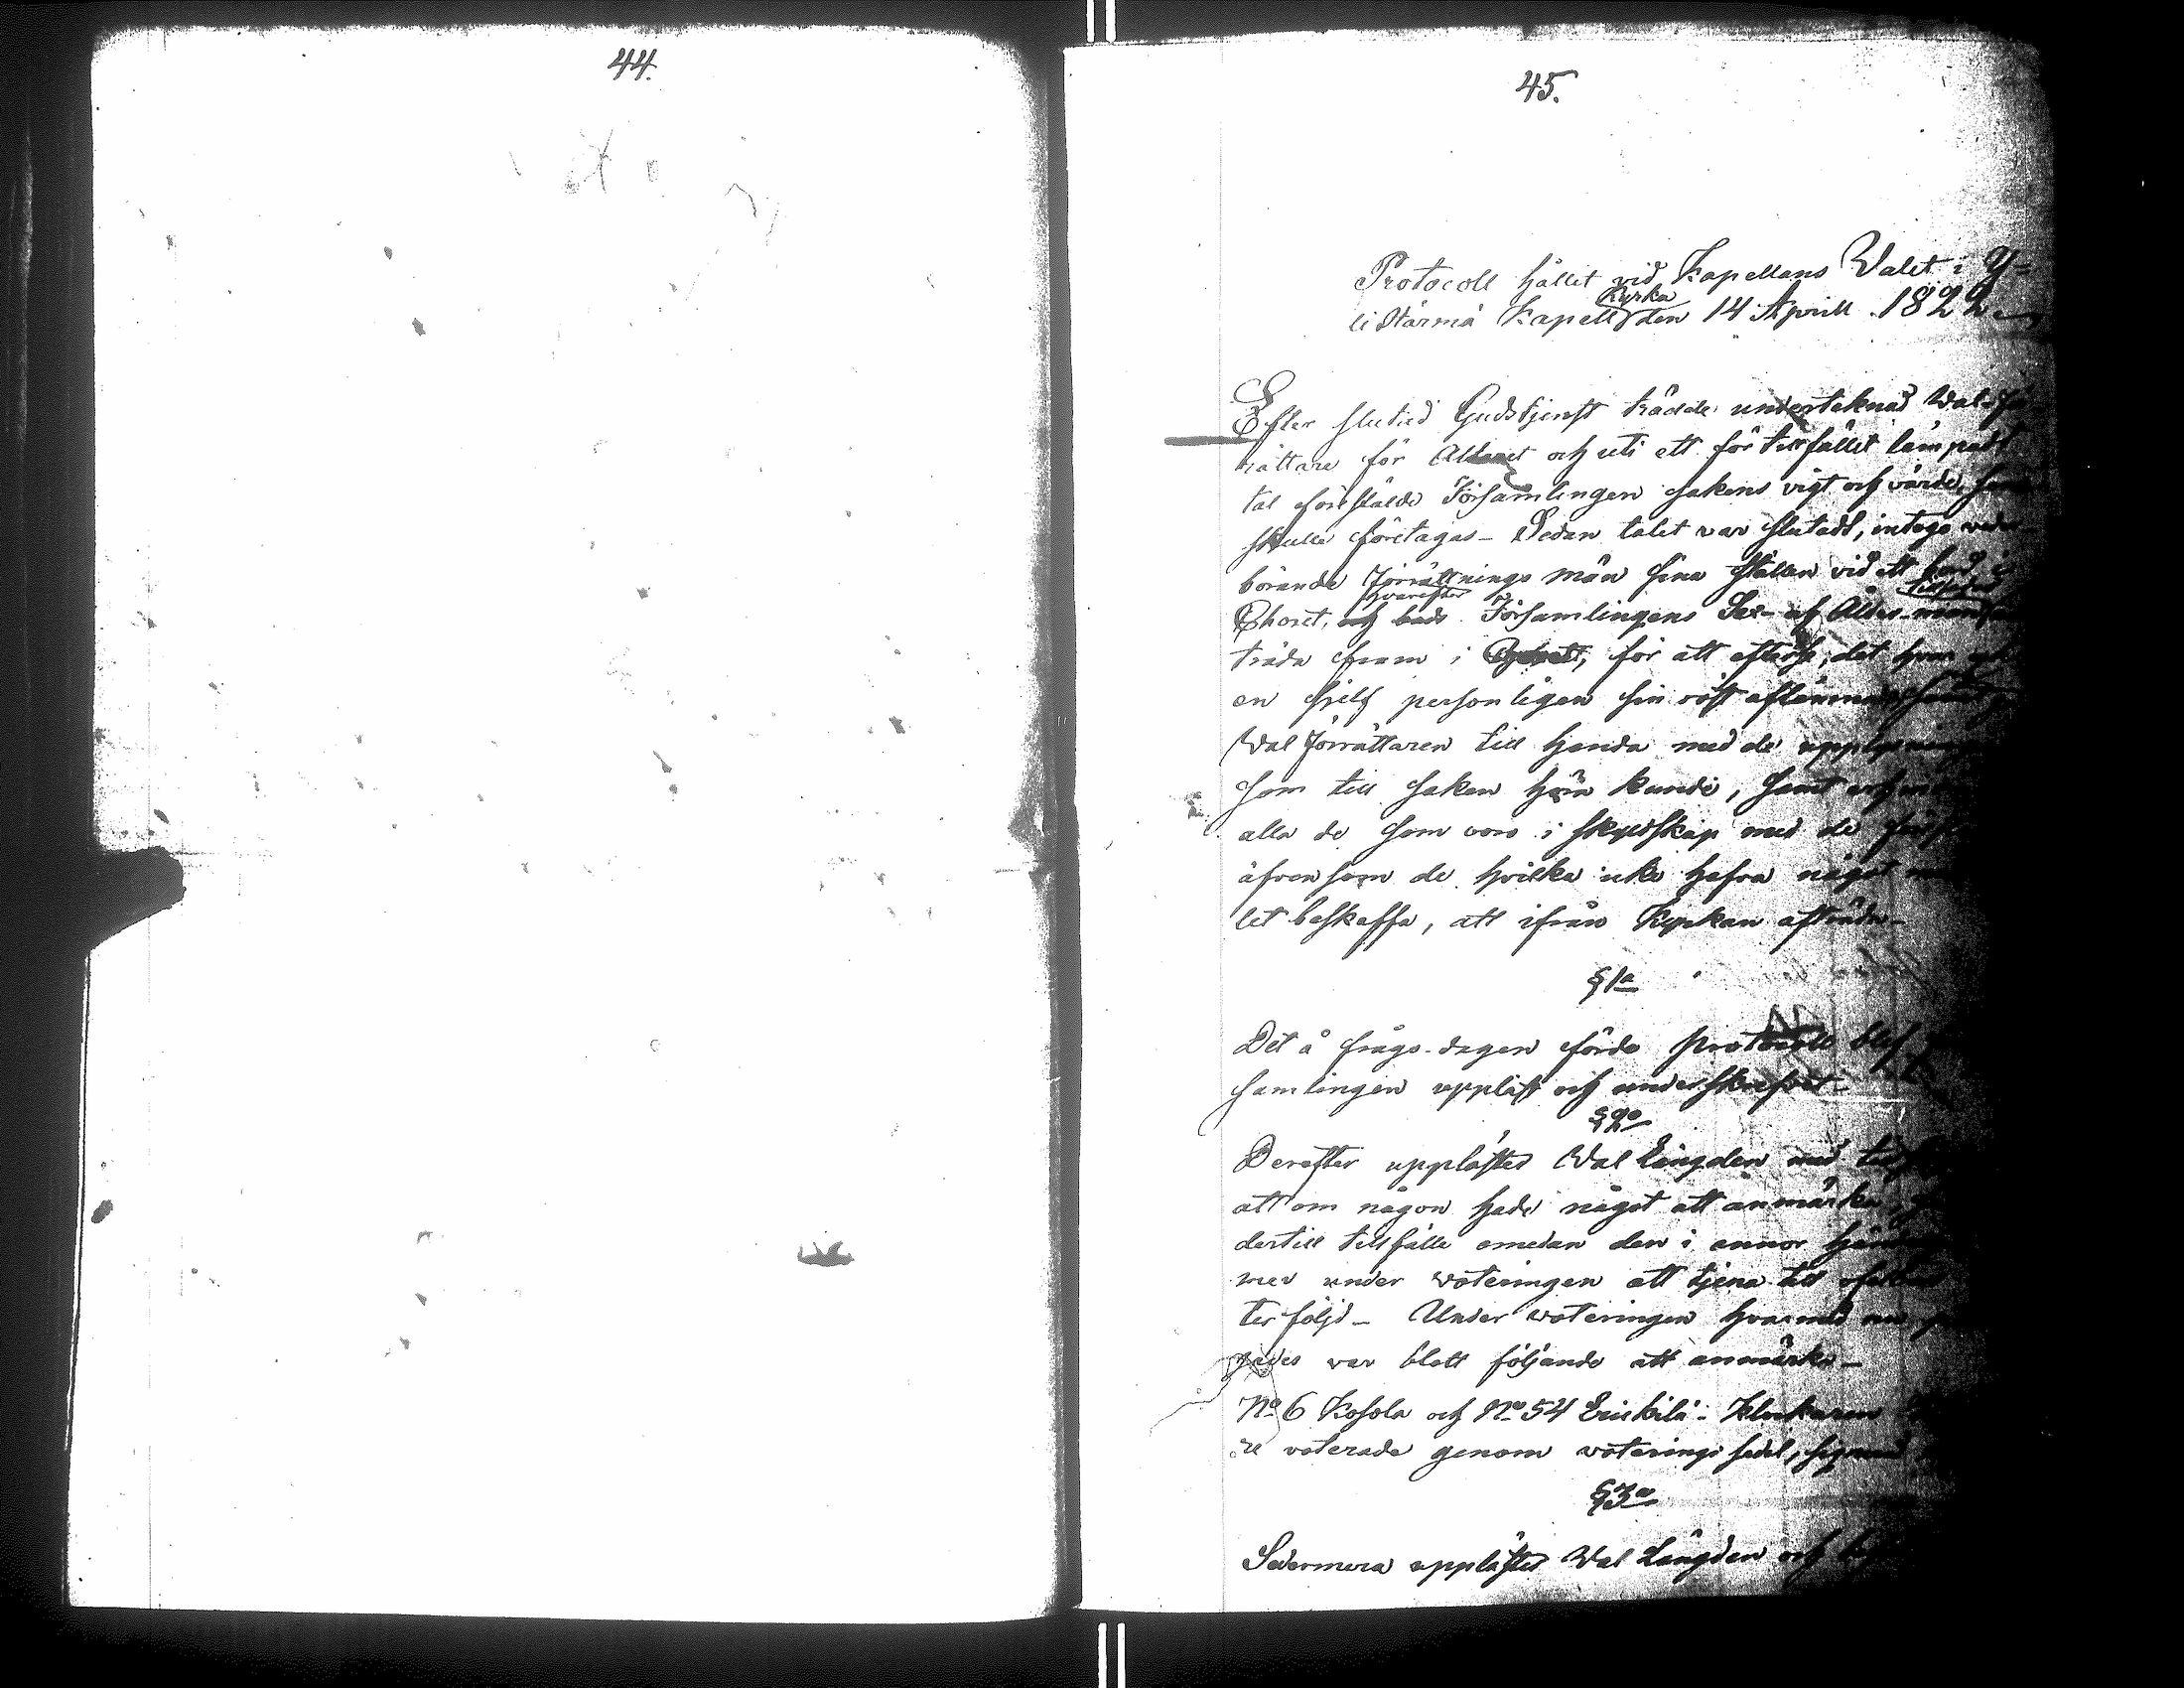 44.
45.
Protocoll hållit vid Kapellans Walet i Y-
li Härmä Kapell Kyrka den 14 Aprill 1822
Efter slutad Gudstjenst trädde underteknad Wal-för
rättare för Altaret och uti ett för tillfället lämpadt
tal förestälde Församlingen sakens vigt och värde, som
skulle företagas - Sedan talet var slutadt, intogo veder
börande Förrättnings män sina ställen vid ett bord i
Choret, och bads hvarefter Församlingens Sex- och Åldes-män
träda fram i för att efterse, det hvar och
en sjelf personligen sin röst aflämnar, samt
Wal Förrättaren till handa med de upplysningar
som till saken höra kunde, samt
alla de som voro i skyldskap med de
äfvensom de hvilka icke hafva något med
let beskaffa, att ifrån Kyrkan afträda -
§ 1a
Det å frågo-dagen förda protocoll blef
samlingen uppläst och underskrefvet -
§ 2a
Derefter upplästes Wal Längden med
att om någon hade något att anmärka,
dertill tillfälle emedan den i annor
mer under voteringen att tjena till
ter följd - Under voteringen hvarmed nu
gades var blott följande att anmärka -
No 6 Kosola och No 54 Erickilä: Klockaren
re voterade genom voterings sedel,
§ 3a
Sedermera upplästes Wal Längden och